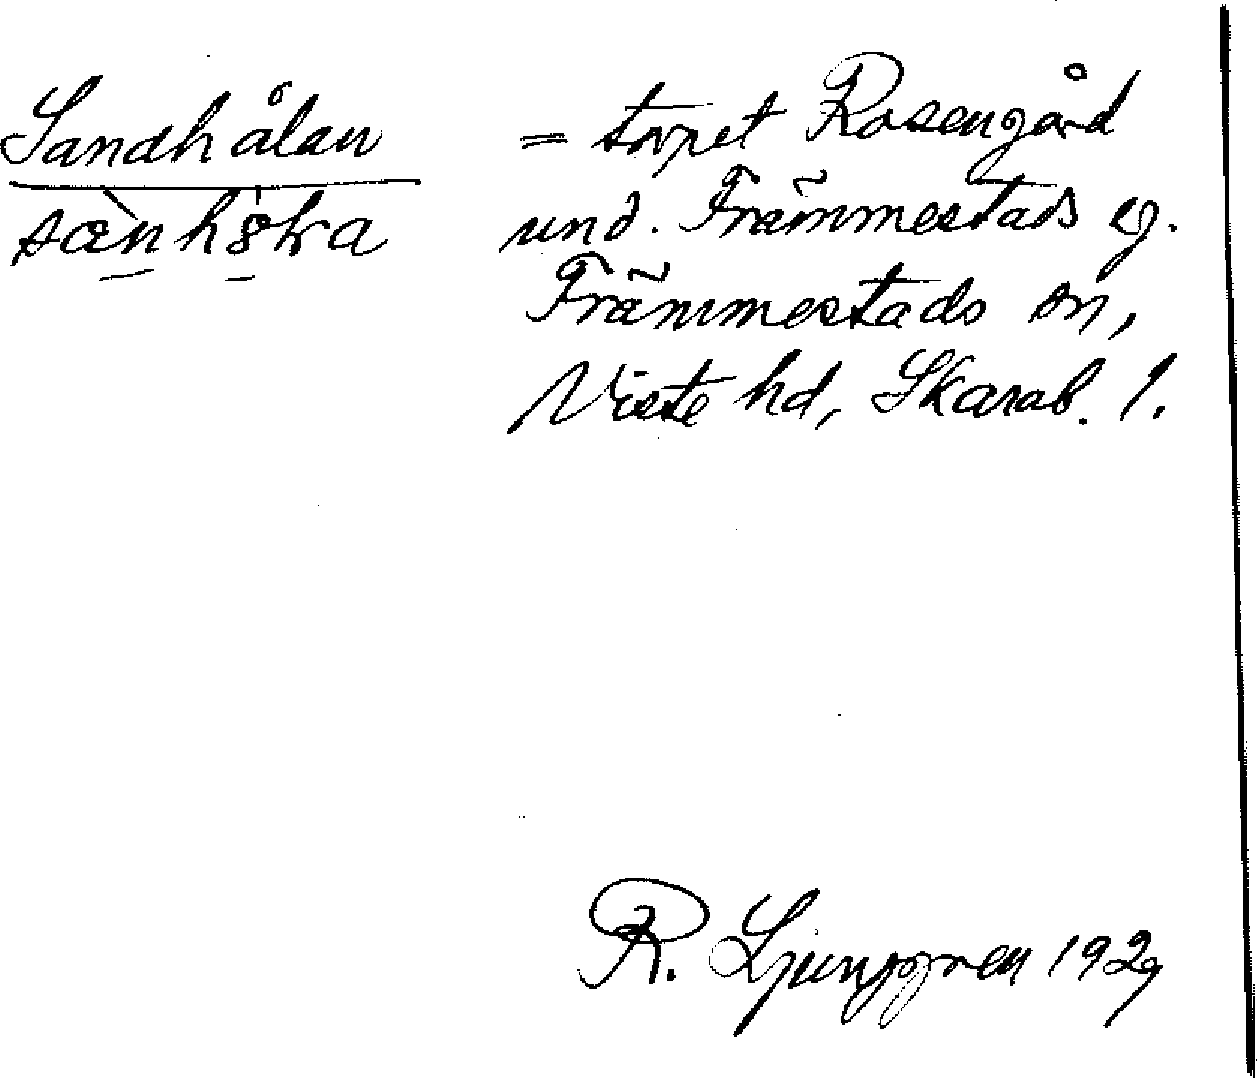 Sandhålan = torpet Rosengård
und. Främmestads eg.
Främmestads sn,
Viste hd, Skarab. l.
R. Ljunggren 1929